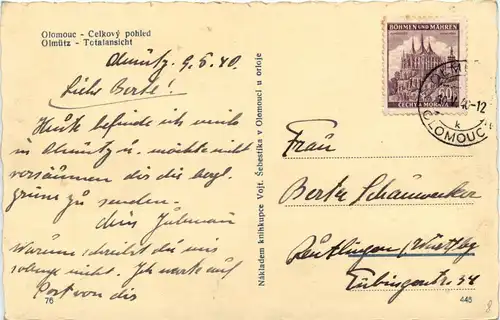 Olomouc - Celkový pohled
Olmütz - Totalansicht
Olmütz, 9.6.40.
Liebe Berte!
Heute befinde ich mich
in Olmütz u. möchte nicht
versäumen dir die
zu senden.
dein
Warum schreibst du mir
solange nicht. Ich warte auf
Post von dir
76
Nákladem knihkupce Vojt. Šebestíka v Olomouci u orloje
BÖHMEN UND MÄHREN
ČECHY A MORAVA
OLOMOUC
Frau
Berta Schauwecker
Reutlingen /Württbg
Tübingerstr 54
446